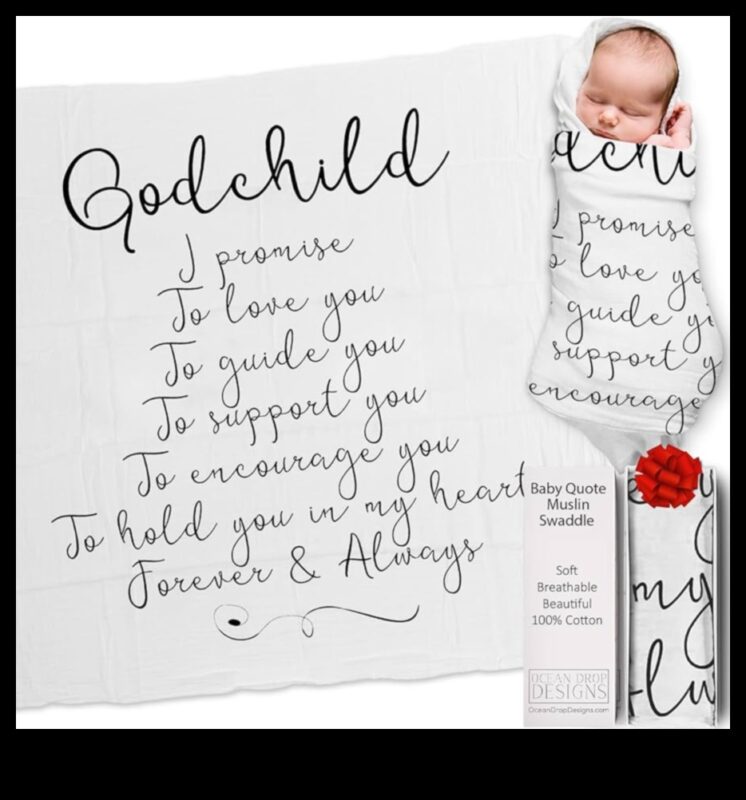 Godchild
I promise
To love you
To guide you
To support you
To encourage you
To hold you in my heart
Forever & Always
I promise
love
guide
support
encourage
Baby Quote
Muslin
Swaddle
Soft
Breathable
Beautiful
100% Cotton
OCEAN DROP
DESIGNS
OceanDropDesigns.com
my